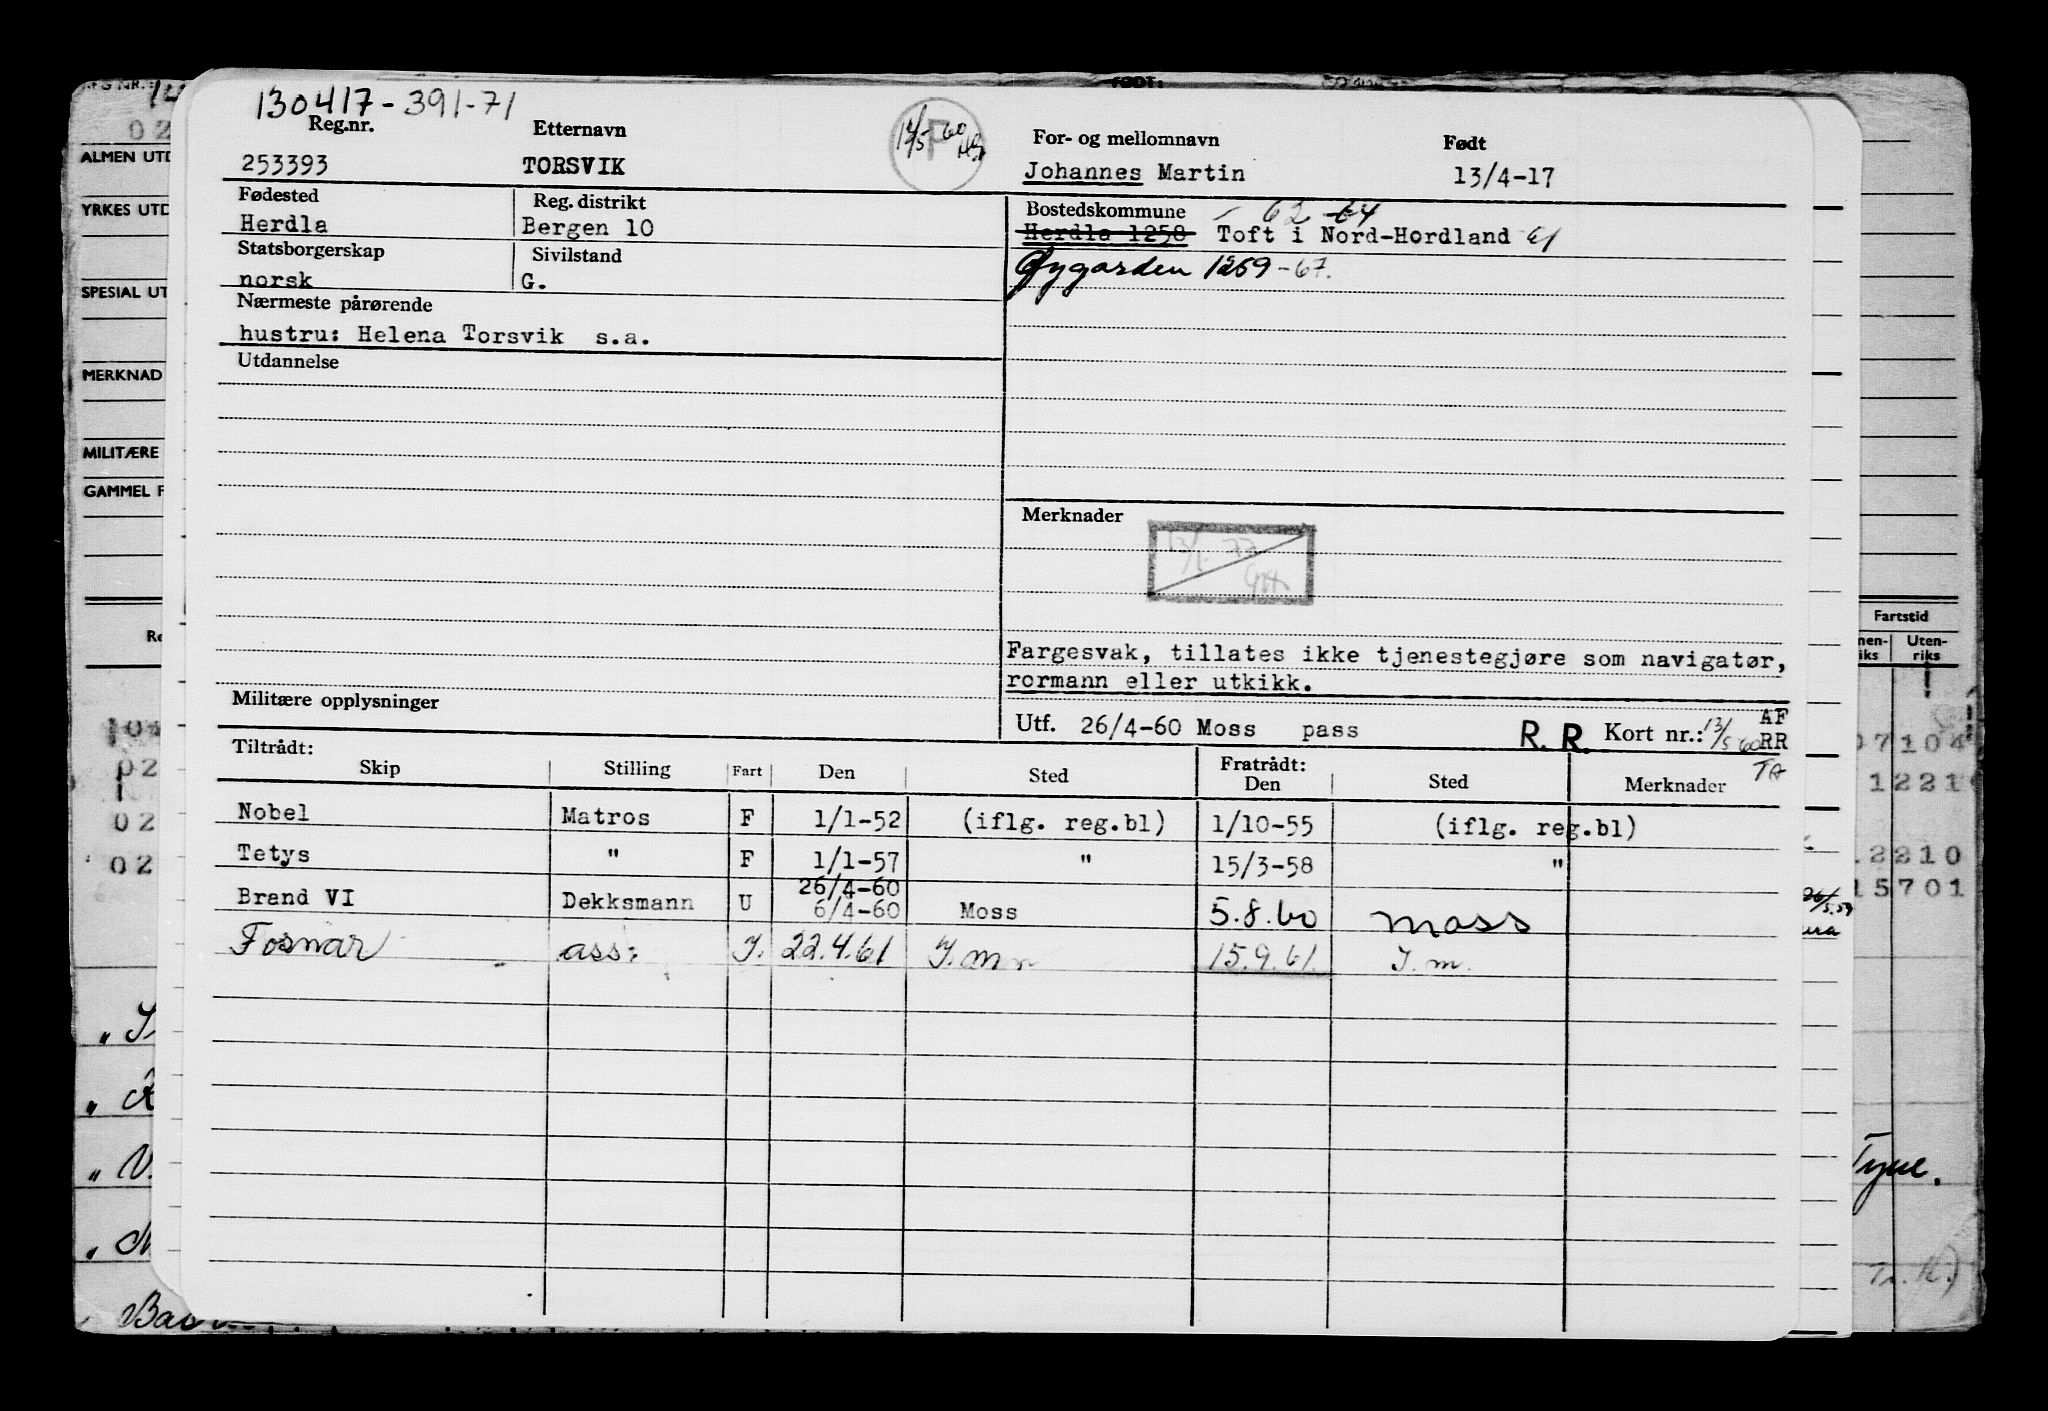 130417-391-71
Reg.nr. Etternavn For- og mellomnavn Født
253393 TORSVIK Johannes Martin 13/4-17
Fødested Reg. distrikt Bostedskommune 62 64
Herdla Bergen 10 Herdla 1258 Toft i Nord-Hordland
Statsborgerskap Sivilstand Øygarden 1259-67.
norsk G.
Nærmeste pårørende
hustru: Helena Torsvik s.a.
Utdannelse
Merknader
Fargesvak, tillates ikke tjenestegjøre som navigatør,
rormann eller utkikk.
Militære opplysninger
Utf. 26/4-60 Moss pass R. R. Kort nr.: 13/5 60 AF
RR
TA
Tiltrådt: Fratrådt:
Skip Stilling Fart Den Sted Den Sted Merknader
Nobel Matros F 1/1-52 (iflg. reg.bl) 1/10-55 (iflg. reg.bl)
Tetys " F 1/1-57 " 15/3-58 "
26/4-60
Brand VI Dekksmann U 6/4-60 Moss 5.8.60 Moss
Fosnar ass: I. 22.4.61 I.m 15.9.61. I.m.
REG NR.
FØDT:
ALMEN UTD
YRKES UTD
SPESIAL UT
MERKNAD
MILITÆRE
GAMMEL F
Re
Fartstid
nen-
iks
Uten-
riks
02
02
02
02
07104
1221
2210
15701
Tyne.